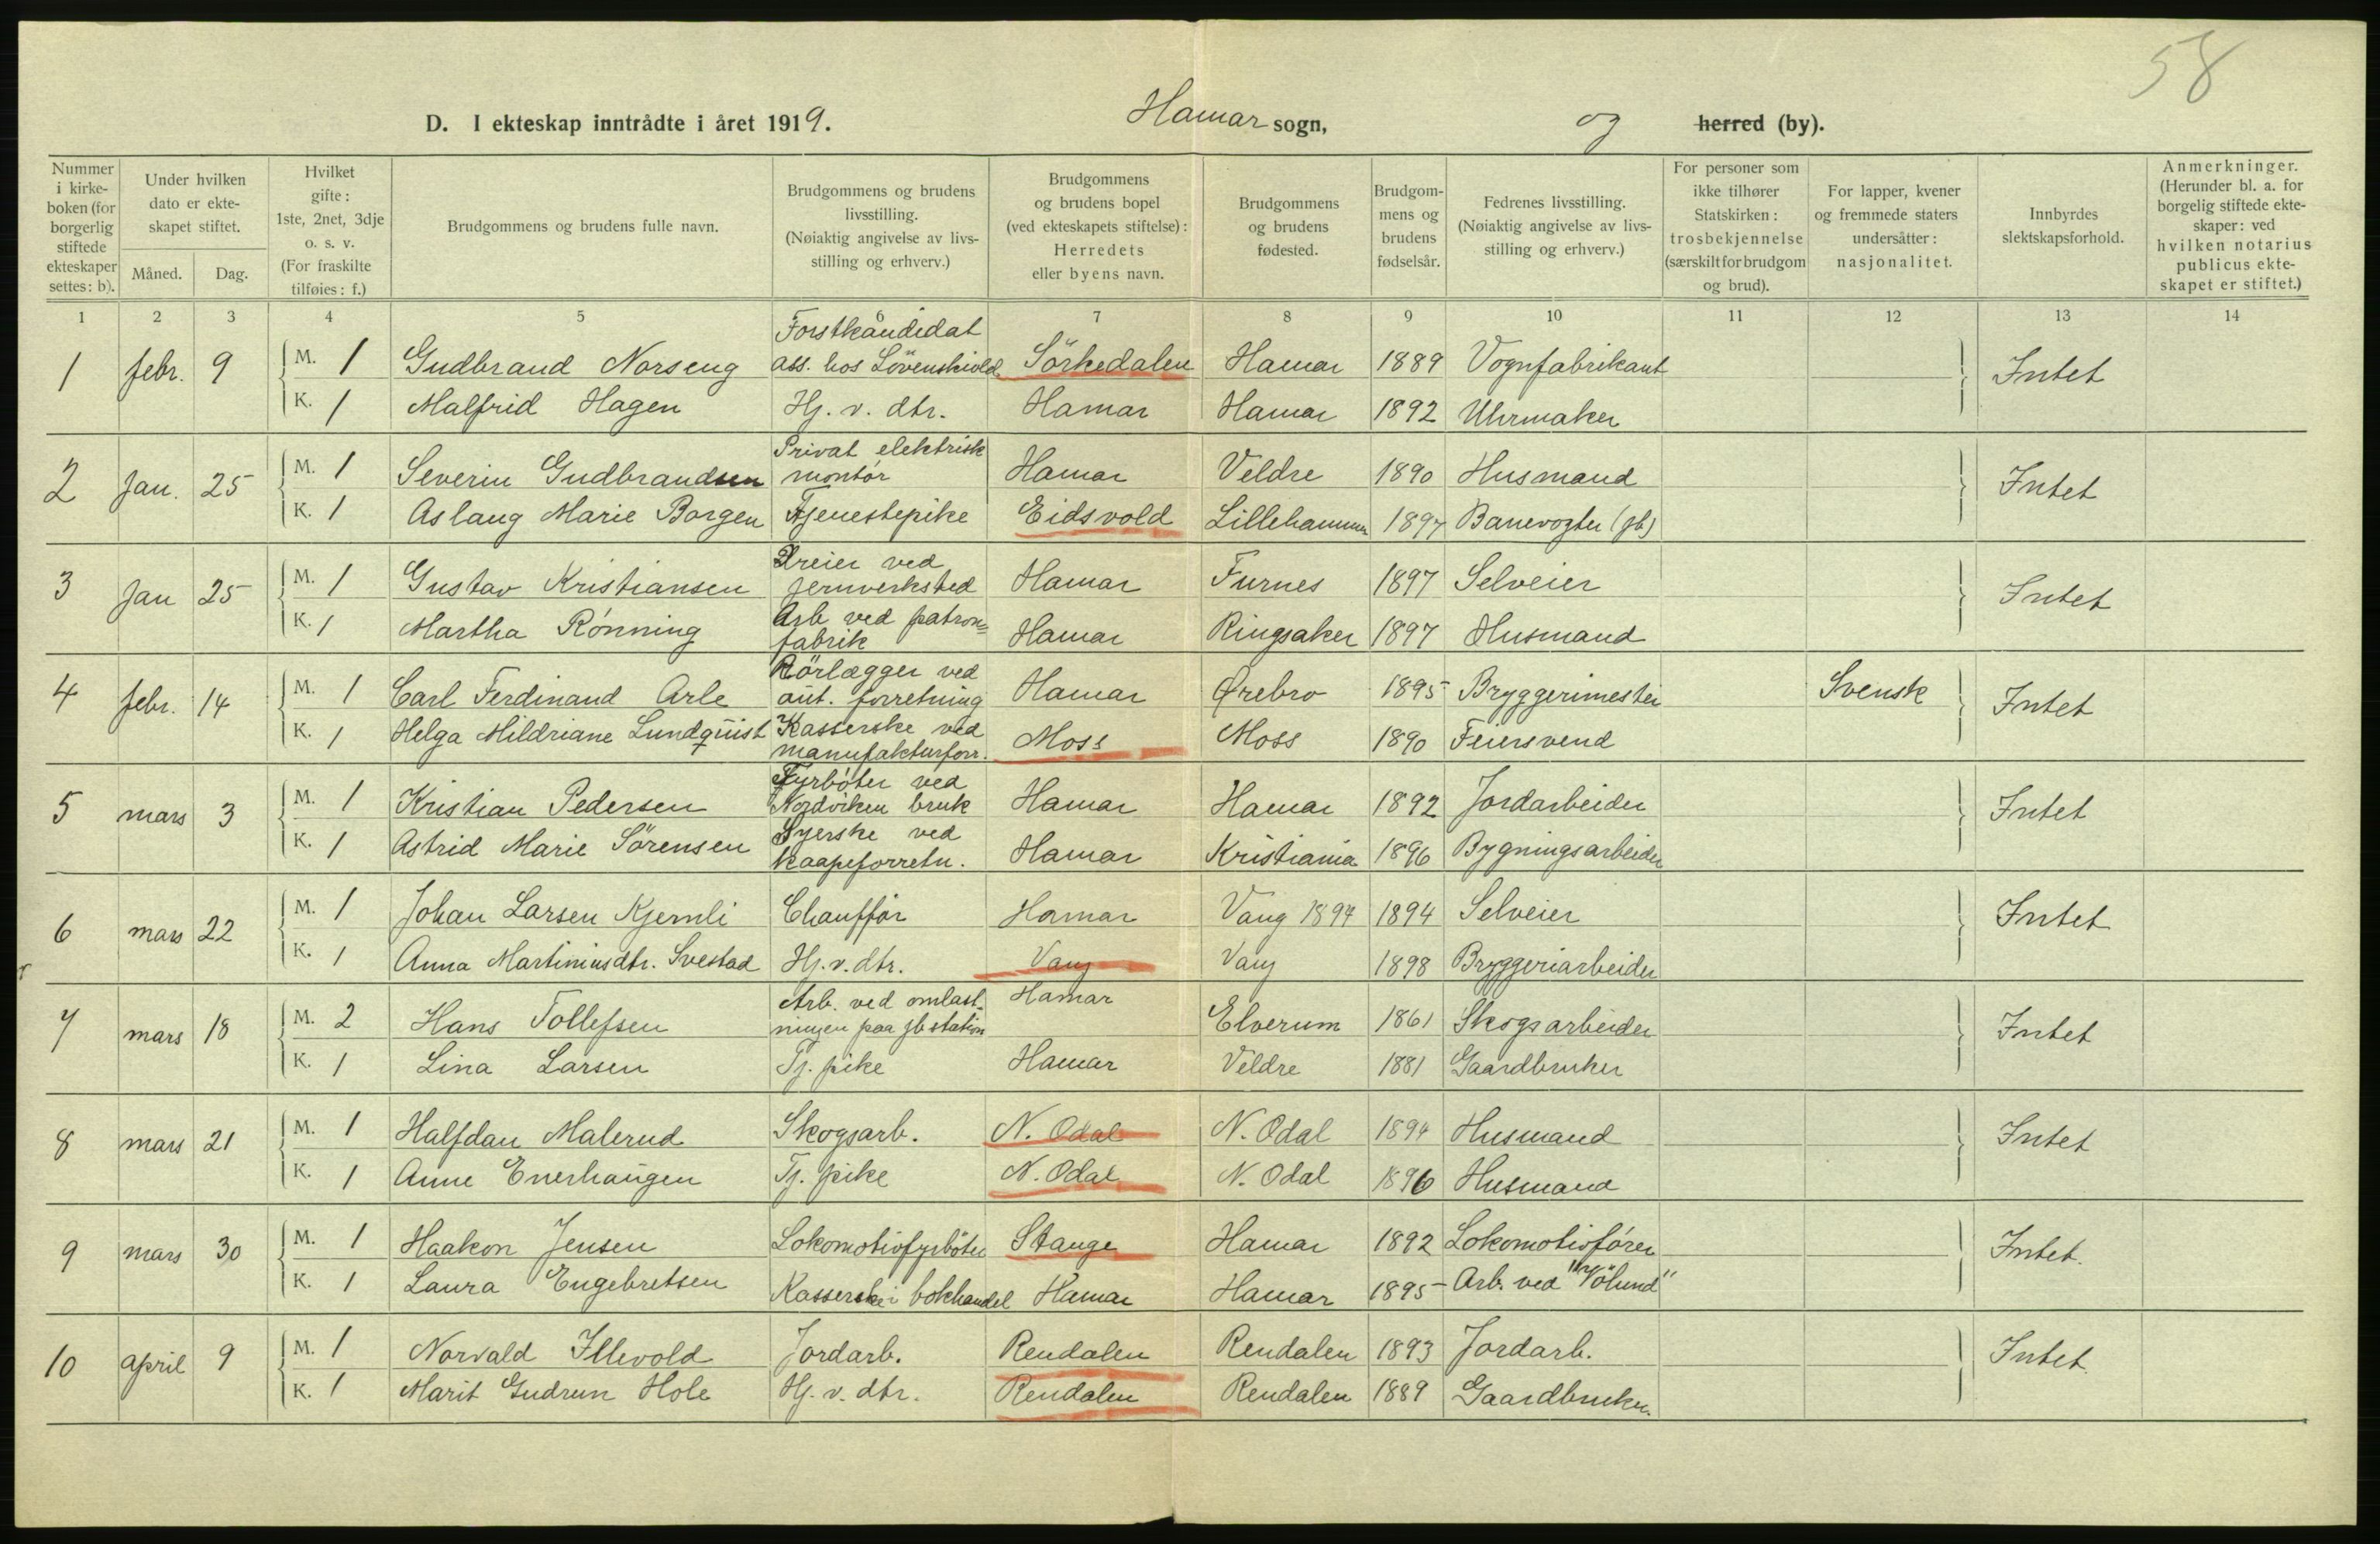 58
D. I ekteskap inntrådte i året 1919. Hamar sogn, og herred (by).
Nummer i kirkeboken (for borgerlig stiftede ekteskaper settes: b).
Under hvilken dato er ekteskapet stiftet.
Måned. Dag.
Hvilket gifte: 1ste, 2net, 3dje o. s. v. (For fraskilte tilføies: f.)
Brudgommens og brudens fulle navn.
Brudgommens og brudens livsstilling. (Nøiaktig angivelse av livsstilling og erhverv.)
Brudgommens og brudens bopel (ved ekteskapets stiftelse): Herredets eller byens navn.
Brudgommens og brudens fødested.
Brudgommens og brudens fødselsår.
Fedrenes livsstilling. (Nøiaktig angivelse av livsstilling og erhverv.)
For personer som ikke tilhører Statskirken: trosbekjennelse (særskilt for brudgom og brud).
For lapper, kvener og fremmede staters undersåtter: nasjonalitet.
Innbyrdes slektskapsforhold.
Anmerkninger. (Herunder bl. a. for borgelig stiftede ekteskaper: ved hvilken notarius publicus ekteskapet er stiftet.)
1 2 3 4 5 6 7 8 9 10 11 12 13 14
1 febr. 9 M. 1 Gudbrand Norseng Forstkandidat ass. hos Lövenskiold Sörkedalen Hamar 1889 Vognfabrikant Intet
K. 1 Malfrid Hagen Hj. v. dtr. Hamar Hamar 1892 Uhrmaker
2 Jan. 25 M. 1 Severin Gudbrandsen Privat elektrisk montör Hamar Veldre 1890 Husmand Intet
K. 1 Aslaug Marie Borgen Tjenestepike Eidsvold Lillehammer 1897 Banevogter (jb)
3 Jan 25 M. 1 Gustav Kristiansen Dreier ved jernverksted Hamar Furnes 1897 Selveier Intet
K. 1 Martha Rönning Arb ved patron=fabrik Hamar Ringsaker 1897 Husmand
4 febr. 14 M. 1 Carl Ferdinand Arle Rörlægger ved aut. forretning Hamar Ørebro 1895 Bryggerimester Svensk Intet
K. 1 Helga Mildriane Lundquist Kasserske ved manufakturforr. Moss Moss 1890 Feiersvend
5 mars 3 M. 1 Kristian Pedersen Fyrböter ved Nordviken bruk Hamar Hamar 1892 Jordarbeider Intet
K. 1 Astrid Marie Sörensen Syerske ved kaapeforretn. Hamar Kristiania 1896 Bygningsarbeider
6 mars 22 M. 1 Johan Larsen Kjernli Chaufför Hamar Vang 1894 1894 Selveier Intet
K. 1 Anna Martiniusdtr. Svestad Hj. v. dtr. Vang Vang 1898 Bryggeriarbeider
7 mars 18 M. 2 Hans Tollefsen Arb. ved omlastningen paa jb station Hamar Elverum 1861 Skogsarbeider Intet
K. 1 Lina Larsen Tj. pike Hamar Veldre 1881 Gaardbruker
8 mars 21 M. 1 Halfdan Malerud Skogsarb. N. Odal N. Odal 1894 Husmand Intet
K. 1 Anne Enerhaugen Tj. pike N. Odal N. Odal 1896 Husmand
9 mars 30 M. 1 Haakon Jensen Lokomotivfyrböter Stange Hamar 1892 Lokomotivförer Intet.
K. 1 Laura Engebretsen Kasserske i bokhandel Hamar Hamar 1895 Arb. ved "Völund"
10 april 9 M. 1 Norvald Illevold Jordarb. Rendalen Rendalen 1893 Jordarb. Intet.
K. 1 Marit Gudrun Hole Hj. v. dtr. Rendalen Rendalen 1889 Gaardbruker.